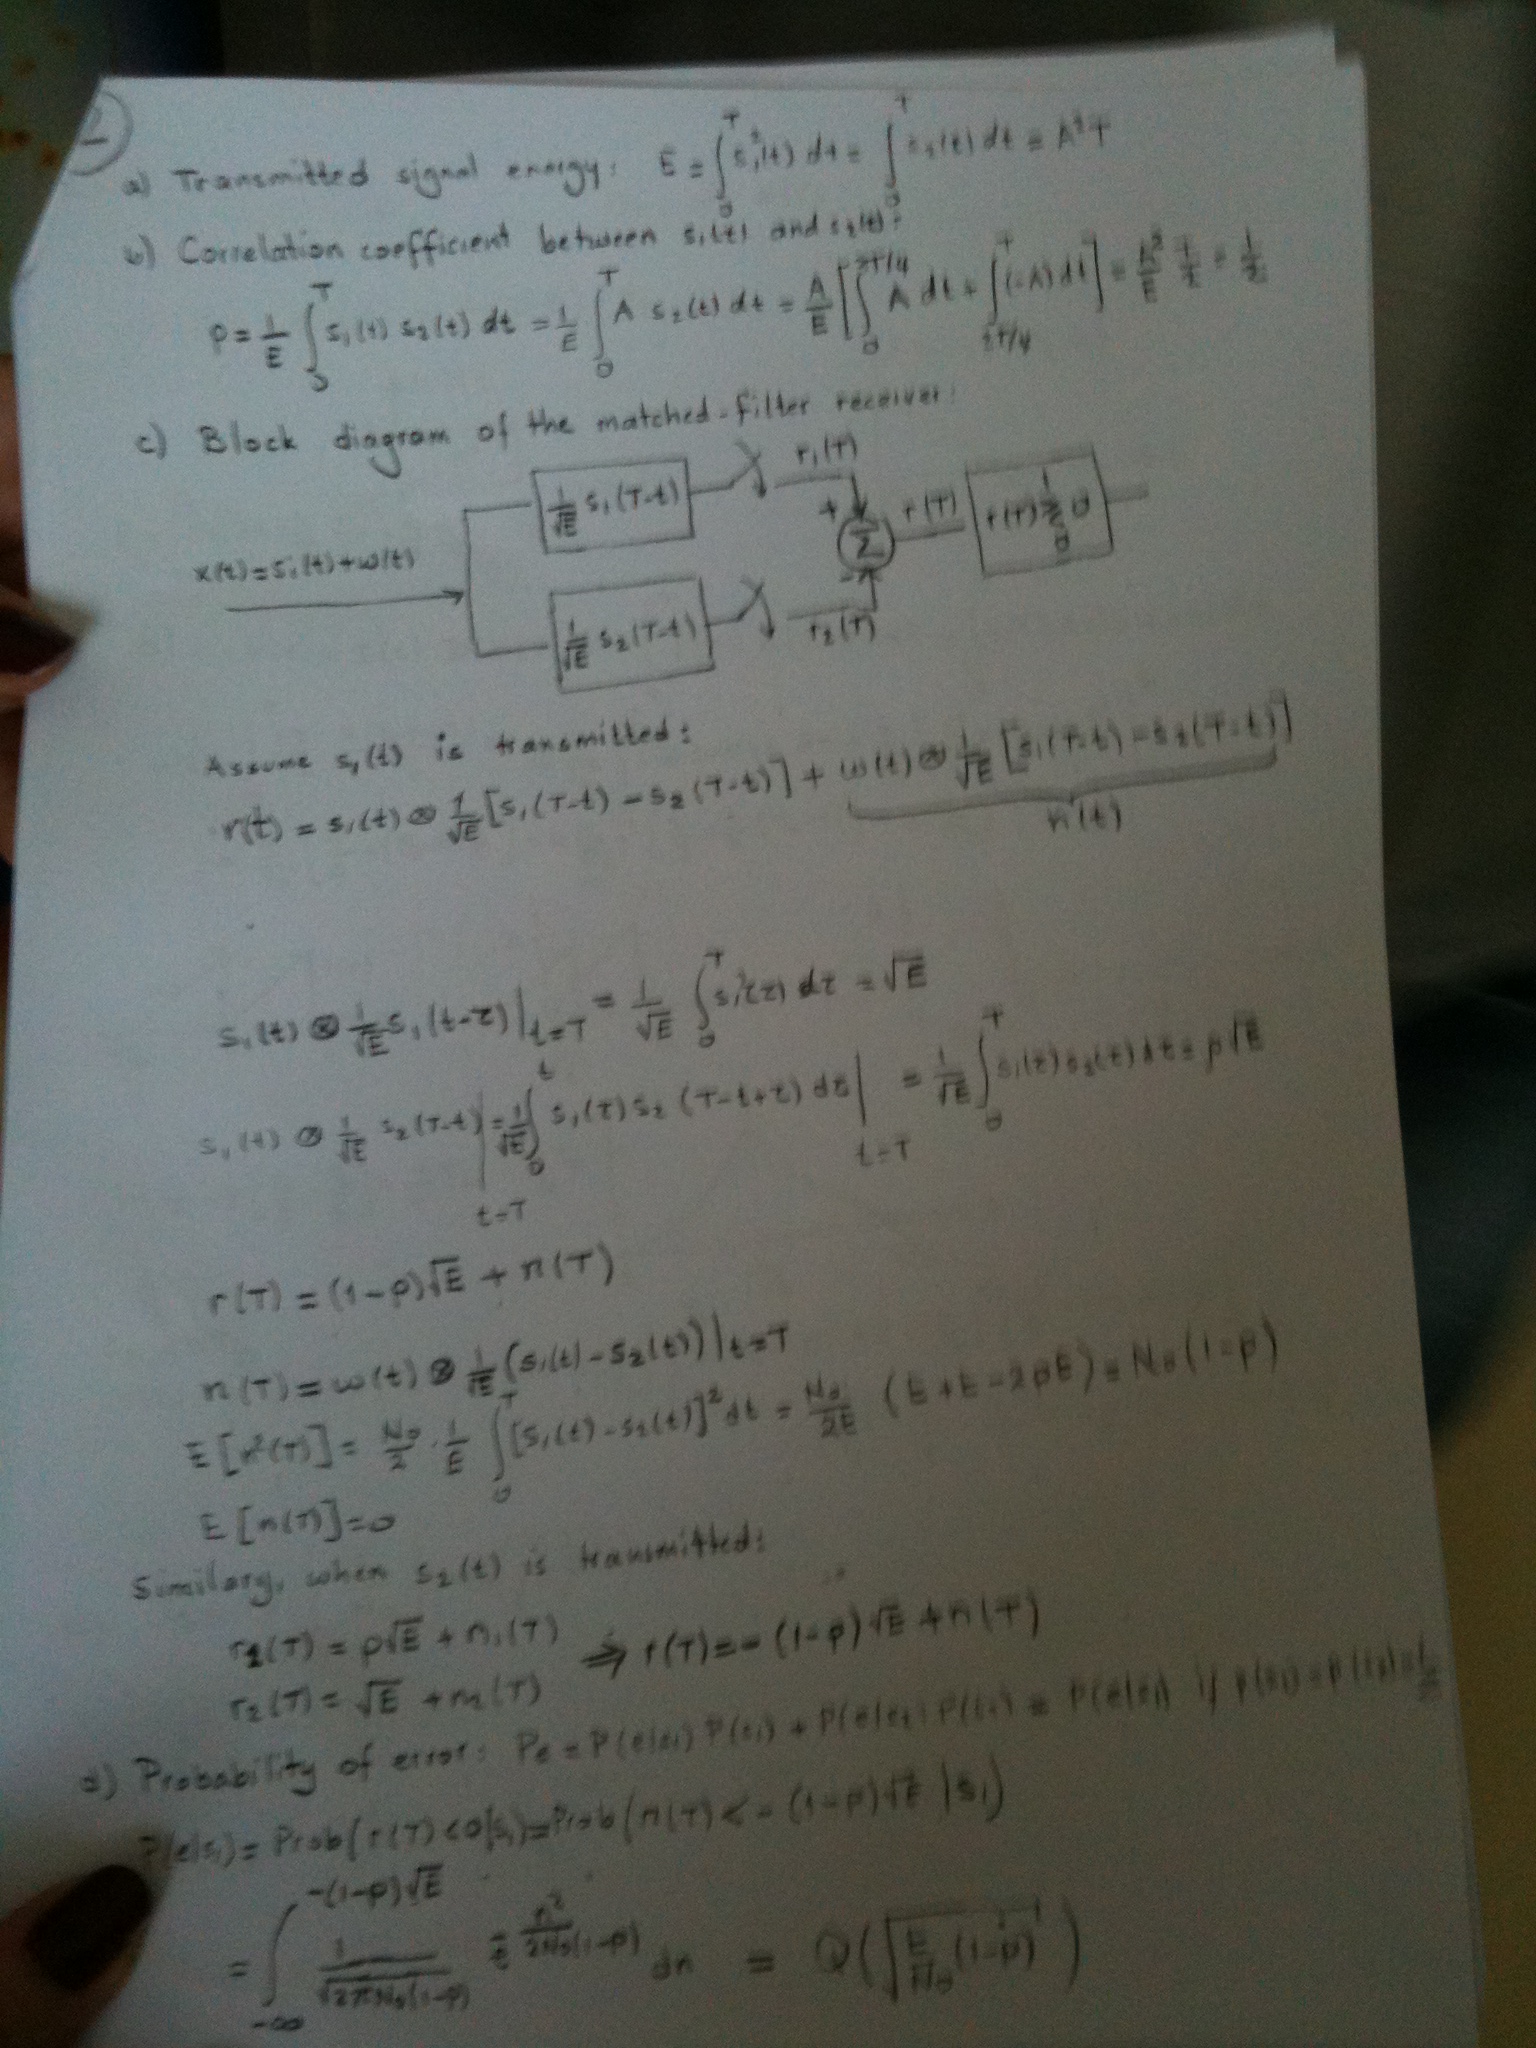 a) Transmitted signal energy: E = ∫₀ᵀ s₁²(t) dt = ∫₀ᵀ s₂(t) dt = A²T
b) Correlation coefficient between s₁(t) and s₂(t):
ρ = 1/E ∫₀ᵀ s₁(t) s₂(t) dt = 1/E ∫₀ᵀ A s₂(t) dt = A/E [∫₀^{3T/4} A dt + ∫_{3T/4}^T (-A) dt] = A²/E T/2 = 1/2
c) Block diagram of the matched-filter receiver:
x(t) = sᵢ(t) + w(t)
1/√E s₁(T-t)
r₁(T)
+
Σ
r(T)
r(T) ≷ 0
1/√E s₂(T-t)
-
r₂(T)
Assume s₁(t) is transmitted:
r(t) = s₁(t) ⊗ 1/√E [s₁(T-t) - s₂(T-t)] + w(t) ⊗ 1/√E [s₁(T-t) - s₂(T-t)]
n(t)
s₁(t) ⊗ 1/√E s₁(t-τ)|t=T = 1/√E ∫₀ᵀ s₁²(τ) dτ = √E
s₁(t) ⊗ 1/√E s₂(T-t)|t=T = 1/√E ∫₀ᵗ s₁(τ) s₂(T-t+τ) dτ|t=T = 1/√E ∫₀ᵀ s₁(t) s₂(t) dt = ρ√E
r(T) = (1-ρ)√E + n(T)
n(T) = w(t) ⊗ 1/√E (s₁(t) - s₂(t))|t=T
E[n²(T)] = N₀/2 · 1/E ∫₀ᵀ [s₁(t) - s₂(t)]² dt = N₀/2E (E+E-2ρE) = N₀(1-ρ)
E[n(T)] = 0
Similary, when s₂(t) is transmitted:
r₁(T) = ρ√E + n₁(T) ⇒ r(T) = -(1-ρ)√E + n(T)
r₂(T) = √E + n₂(T)
d) Probability of error: Pe = P(e|s₁) P(s₁) + P(e|s₂) P(s₂) = P(e|s₁) if p(s₁) = p(s₂) = 1/2
P(e|s₁) = Prob(r(T) < 0|s₁) = Prob(n(T) < -(1-ρ)√E |s₁)
= ∫_{-∞}^{-(1-ρ)√E} 1/√(2πN₀(1-ρ)) e^{-n²/2N₀(1-ρ)} dn = Q(√(E/N₀ (1-ρ)))